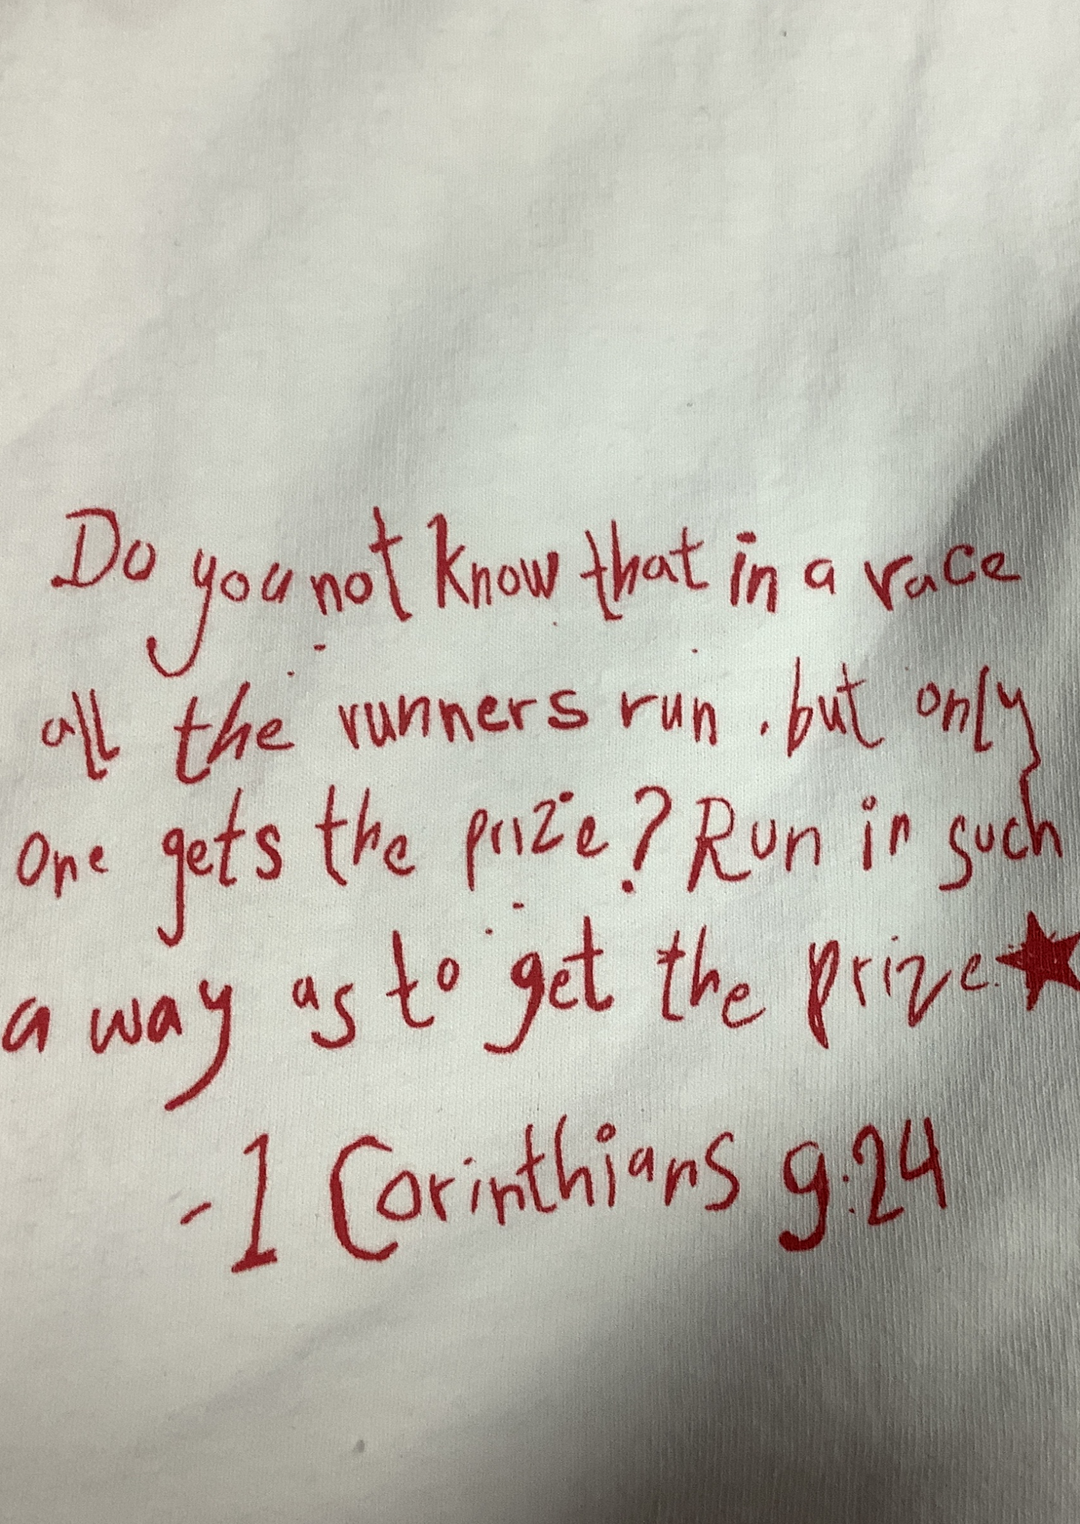 Do you not know that in a race
all the runners run , but only
one gets the prize? Run in such
a way as to get the prize.
-1 Corinthians 9:24